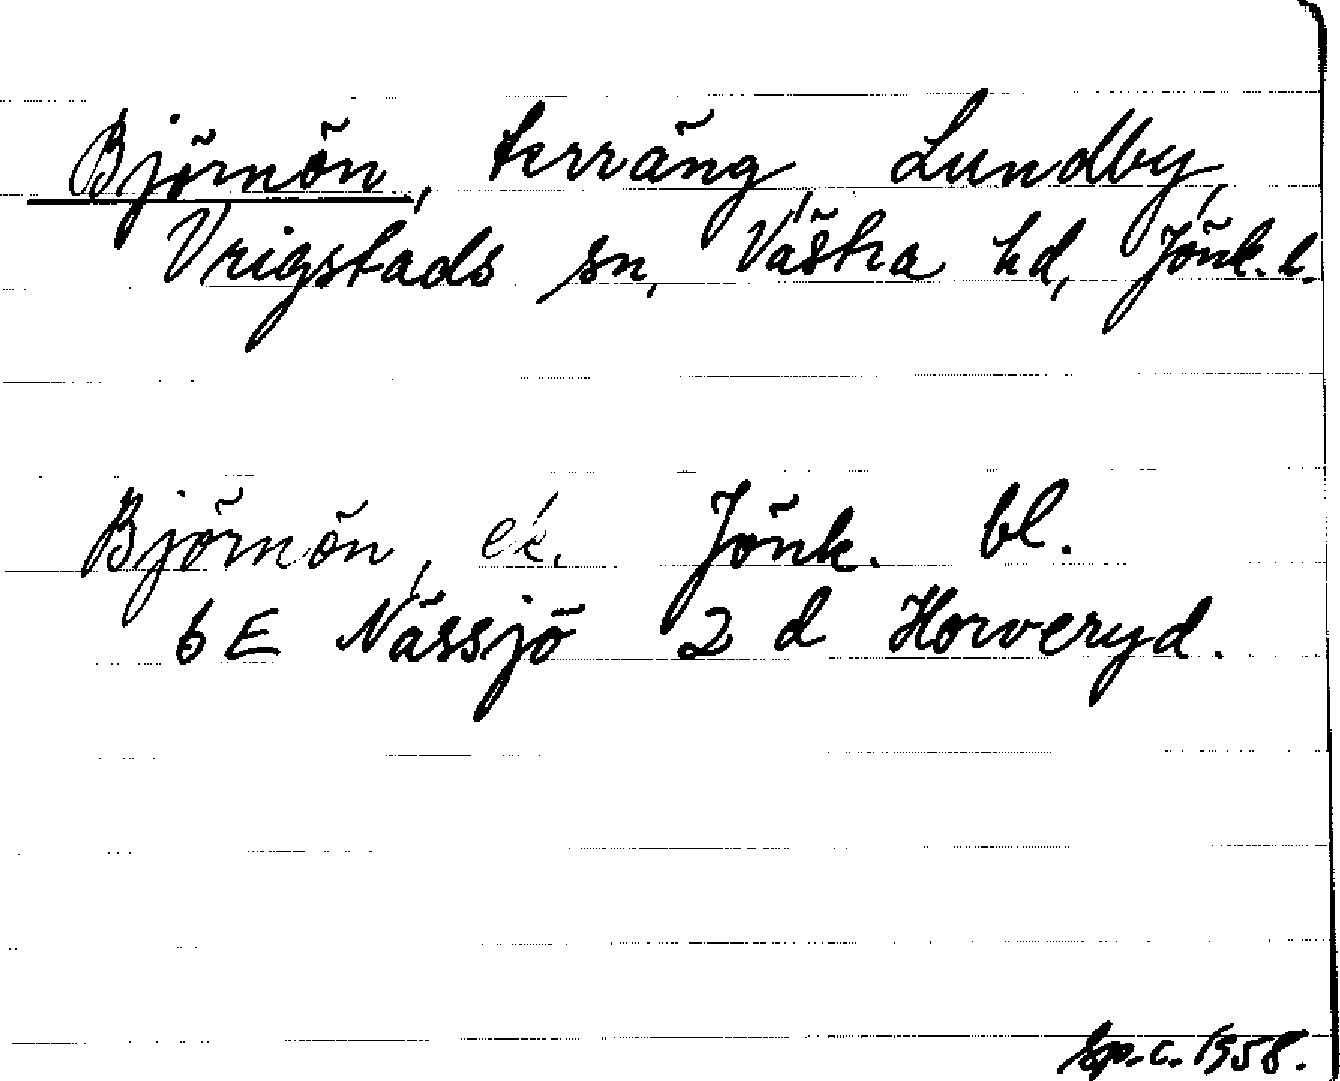 Björnön, terräng, Lundby,
Vrigstads sn, Västra hd, Jönk. l.
Björnön, ek. Jönk. bl.
6 E Nässjö 2 d Horveryd.
1958.